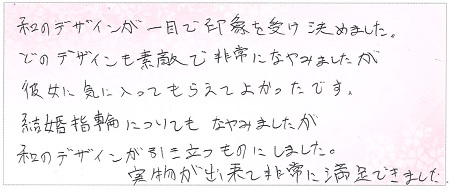 和のデザインが一目で印象を受け決めました。
どのデザインも素敵で非常になやみましたが
彼女に気に入ってもらえてよかったです。
結婚指輪についてもなやみましたが
和のデザインが引き立つものにしました。
実物が出来て非常に満足できました